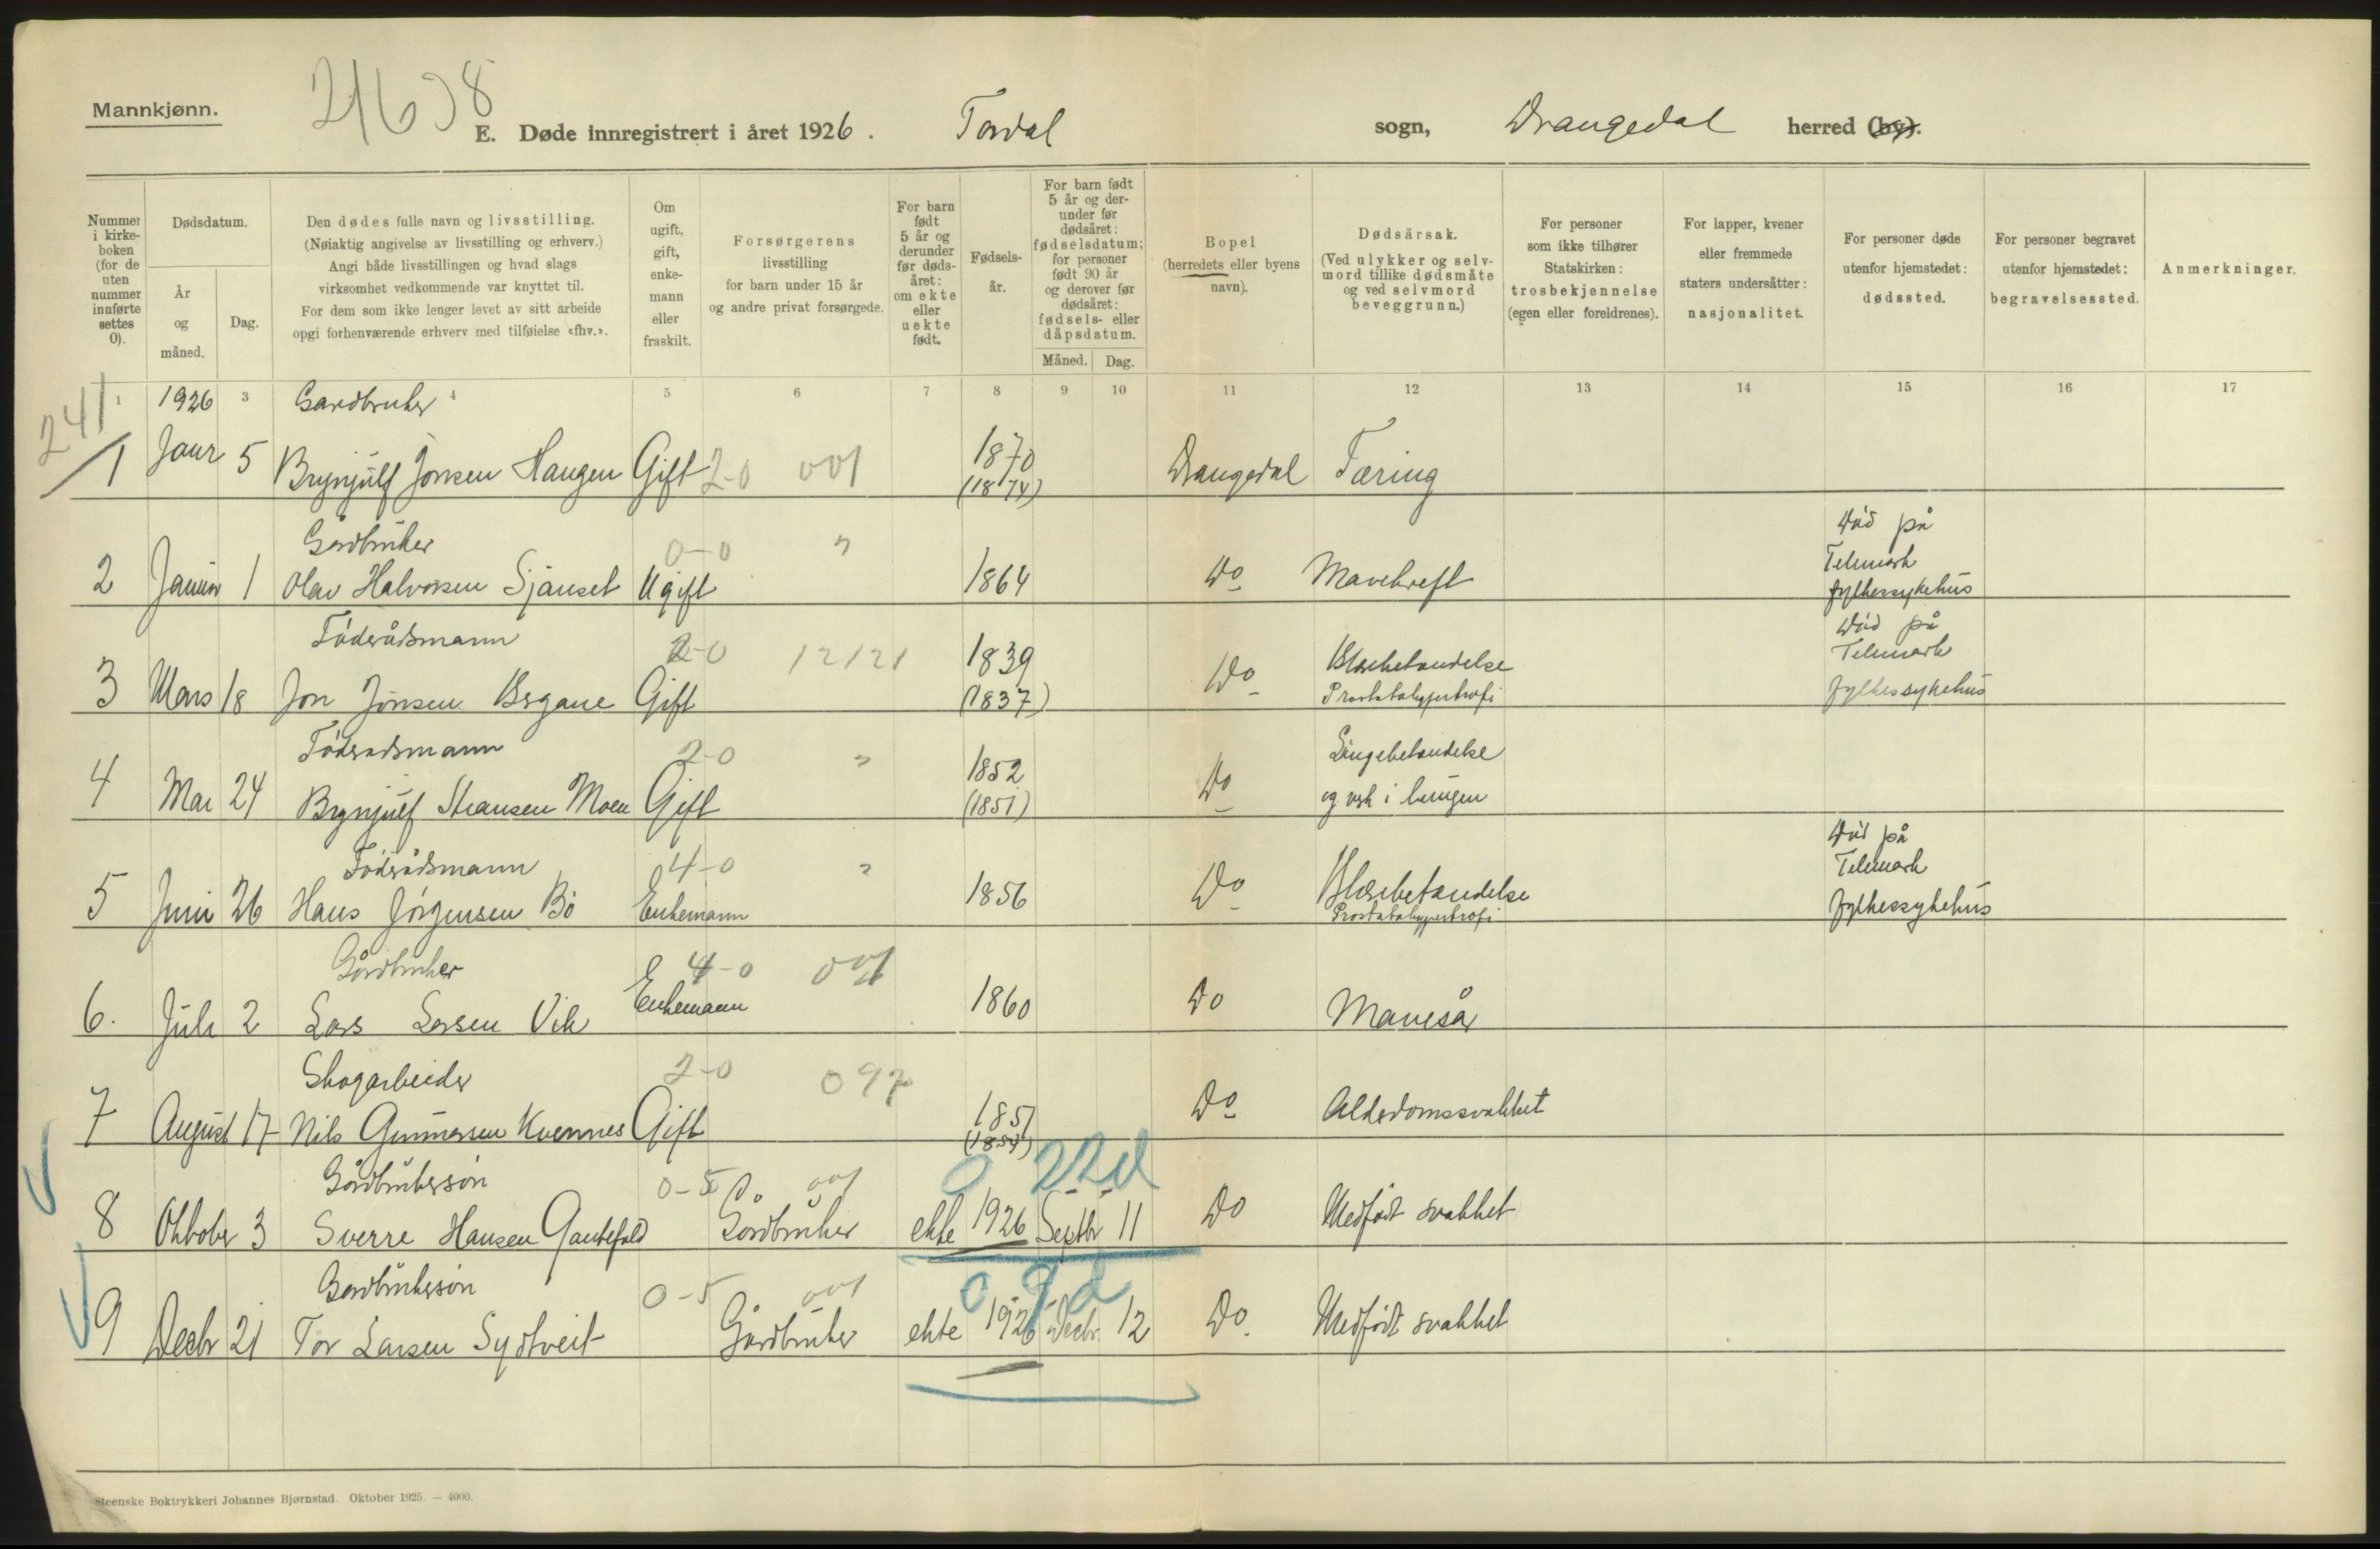 Mannkjønn.
21638
E. Døde innregistrert i året 1926. Tordal sogn, Drangedal herred (by).
Nummer i kirke-boken (for de uten nummer innførte settes 0).
Dødsdatum.
År og måned.
Dag.
Den dødes fulle navn og livsstilling.
(Nøiaktig angivelse av livsstilling og erhverv.)
Angi både livsstillingen og hvad slags
virksomhet vedkommende var knyttet til.
For dem som ikke lenger levet av sitt arbeide
opgi forhenværende erhverv med tilføielse «fhv.».
Om ugift, gift, enke-mann eller fraskilt.
Forsørgerens
livsstilling
for barn under 15 år
og andre privat forsørgede.
For barn født 5 år og derunder før døds-året: om ekte eller uekte født.
Fødsels-år.
For barn født 5 år og der-under før dødsåret: fødselsdatum; for personer født 90 år og derover før dødsåret: fødsels- eller dåpsdatum.
Måned. Dag.
Bopel
(herredets eller byens
navn).
Dødsårsak.
(Ved ulykker og selv-
mord tillike dødsmåte
og ved selvmord
beveggrunn.)
For personer
som ikke tilhører
Statskirken:
trosbekjennelse
(egen eller foreldrenes).
For lapper, kvener
eller fremmede
staters undersåtter:
nasjonalitet.
For personer døde
utenfor hjemstedet:
dødssted.
For personer begravet
utenfor hjemstedet:
begravelsessted.
Anmerkninger.
1 1926 3 4 5 6 7 8 9 10 11 12 13 14 15 16 17
241
Gardbruker
1 Janr 5 Brynjulf Jonsen Haugen Gift 2-0 001 1870 (1874) Drangedal Tæring
Gårdbruker
2 Januar 1 Olav Halvorsen Sjånset Ugift 0-0 " 1864 Do Mavekreft Död på Telemark fylkessykehus
Föderådsmann
3 Mars 18 Jon Jonsen Bsgane Gift 2-0 12121 1839 (1837) Do Blærebetændelse Prostatahypertrofi Död på Telemark fylkessykehus
Föderadsmann
4 Mai 24 Brynjulf Moen Gift 2-0 " 1852 (1851) Do Lungebetændelse og vsk i lungen
Föderådsmann
5 Juni 26 Hans Jörgensen Bö Enkemann 4-0 " 1856 Do Blærebetændelse Prostatahypertrofi Död på Telemark fylkessykehus
Gårdbruker
6. Juli 2 Lars Larsen Vik Enkemann 4-0 001 1860 Do Mavesår
Skogarbeider
7 August 17 Nils Gunnarsen Kvennes Gift 2-0 097 1851 (1854) Do Alderdomssvakhet
Gårdbrukersön
8 Oktober 3 Sverre Hansen Gautefald 0-5 001 Gårdbruker ekte 1926 Septbr 11 0 22d Do Medfödt svakhet
Gardbrukersön
9 Decbr 21 Tor Larsen Sydtveit 0-5 001 Gårdbruker ekte 1926 Decbr. 12 0 9d Do. Medfödt svakhet
Steenske Boktrykkeri Johannes Bjørnstad. Oktober 1925. — 4000.